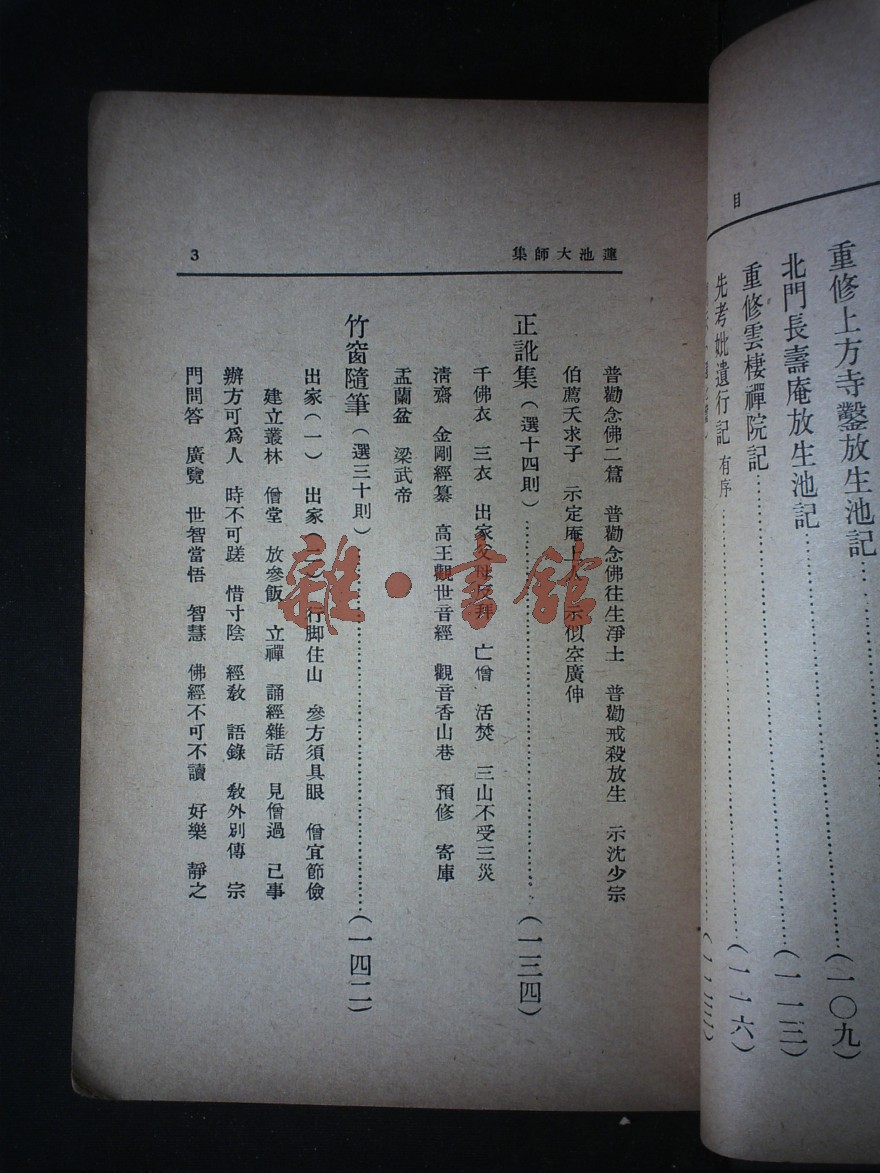 目
重修上方寺鑿放生池記……(一〇九)
北門長壽庵放生池記……(一一三)
重修雲棲禪院記……(一一六)
先考妣遺行記 有序……
蓮池大師集 3
普勸念佛二篇 普勸念佛往生淨土 普勸戒殺放生 示沈少宗
伯薦天求子 示定庵上人 示似空廣伸
正訛集(選十四則)……(一三四)
千佛衣 三衣 出家父母反拜 亡僧 活焚 三山不受三災
清齋 金剛經纂 高王觀世音經 觀音香山卷 預修 寄庫
盂蘭盆 梁武帝
竹窗隨筆(選三十則)……(一四二)
出家(一) 出家(二) 行脚住山 參方須具眼 僧宜節儉
建立叢林 僧堂 放參飯 立禪 誦經雜話 見僧過 己事
辦方可為人 時不可蹉 惜寸陰 經教 語錄 教外別傳 宗
門問答 廣覽 世智當悟 智慧 佛經不可不讀 好樂 靜之
雜·書館